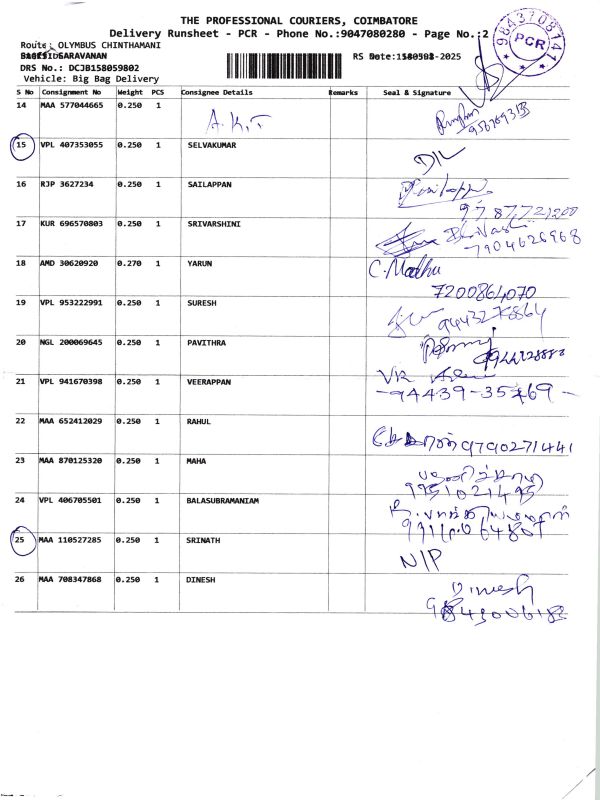 THE PROFESSIONAL COURIERS, COIMBATORE
Delivery Runsheet - PCR - Phone No.:9047080280 - Page No.:2
9843708141
PCR
Route: OLYMBUS CHINTHAMANI
SARAVANAN
DRS No.: DCJB158059802
Vehicle: Big Bag Delivery
S No Consignment No Weight PCS Consignee Details Remarks Seal & Signature
14 MAA 577044665 0.250 1 A.K.T
15 VPL 407353055 0.250 1 SELVAKUMAR D/L
16 RJP 3627234 0.250 1 SAILAPPAN
17 KUR 696570803 0.250 1 SRIVARSHINI
7904626968
18 AMD 30620920 0.270 1 YARUN C. Madhu
7200864070
19 VPL 953222991 0.250 1 SURESH
9443278864
20 NGL 200069645 0.250 1 PAVITHRA
21 VPL 941670398 0.250 1 VEERAPPAN VR
-94439-35769-
22 MAA 652412029 0.250 1 RAHUL 9790271441
23 MAA 870125320 0.250 1 MAHA
9951021495
24 VPL 406705501 0.250 1 BALASUBRAMANIAM
25 MAA 110527285 0.250 1 SRINATH N/P
26 MAA 708347868 0.250 1 DINESH Dinesh